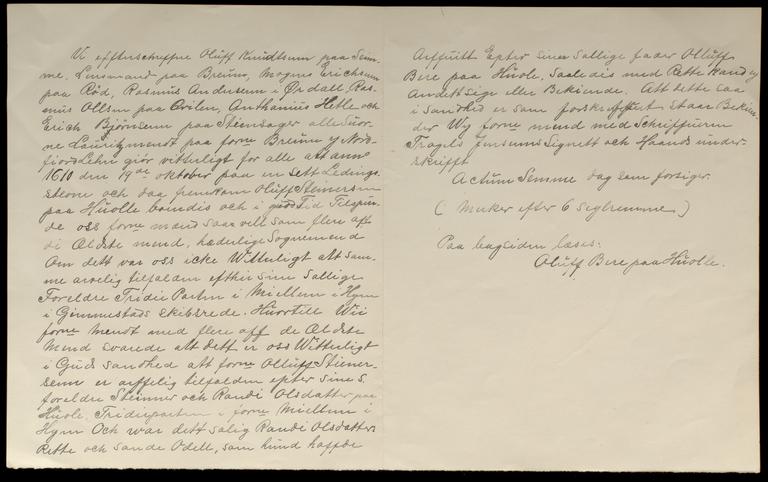 Vi effterschreffne Oluff Knudtsum paa Sem-
me, Lensmand paa Breüm, Mogens Erichsum
paa Röd, Rasmüs Andersenn i Ørdall, Ras-
müs Ollsen paa Cvilen, Anthaniüs Hetle och
Erich Björnsenn paa Steinsager alle Süor-
ne Lauritzmendt paa forne Breüm y Nord-
fiordLehn giör vitterligt for alle att anno
1610 den 19de oktober paa en sett Ledings-
steone och daa fremkom Olüff Steinersum
paa Hüolle boendis och i Tid Tilspur-
de oss forne mend saa vell som flere aff
di Ældste mend, hæderlige Sognemend
Om dett var oss icke Witterligt att sam-
me arvelig tilfalden efther sine sallige
Foreldre Tridie Parten i Miellem i Hyen
i Gimmestads skibbrede. Hüortill Wii
forne Mendt med flere aff de Ældste
Mend svarede att dett er oss Witterligt
i Guds Sandhed att forne Olluff Stiener-
senn er arffelig tilfalden epter sine S.
foreldre Steinner och Randi Olsdatter paa
Hüole, Tridieparten i forne Miellem i
Hyen Och war dett salig Randi Olsdatter
Rette och sande Odell, som hünd haffde
Arffuitt Epter sinn Sallige fader Olluff
Bere paa Hüole, Saaledis med Rette kand y
Andett sige eller Bekiende. Att dette saa
i sandhed er som forskreffuet staar Bekien-
der Wy forne mend med Schriffuerrn
Trogels Jensums Signett och Haands under-
skrifft
Actum Semme dag som forsiger.
(Merker efter 6 seglremme)
Paa bagsiden læses:
Oluff Bere paa Hüolle.